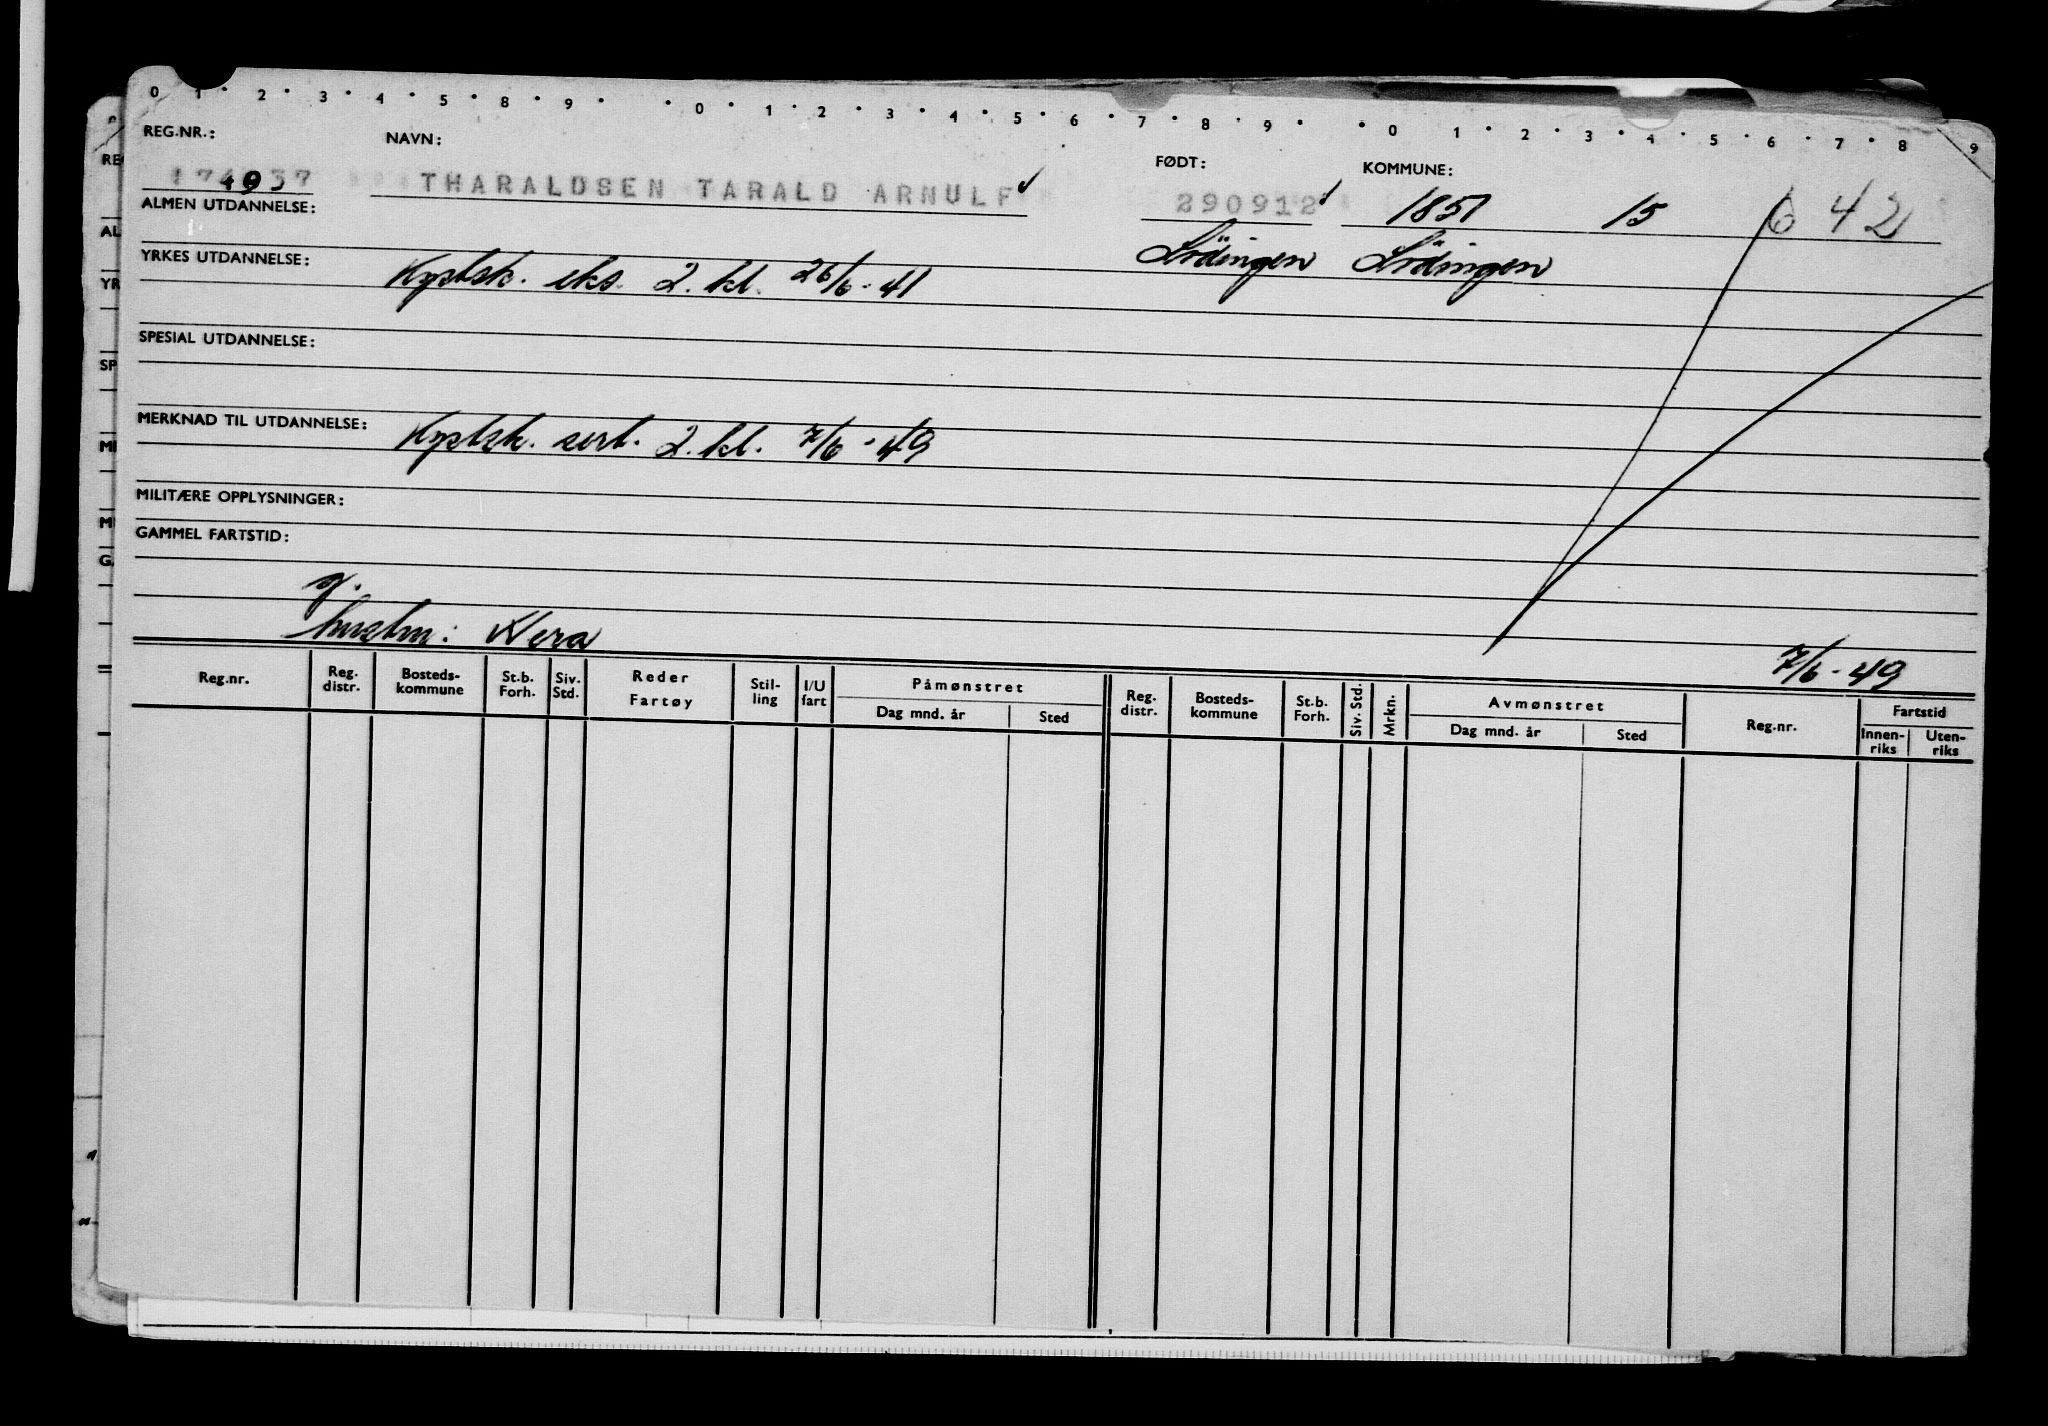 0 1 2 3 4 5 8 9 0 1 2 3 4 5 6 7 8 9 0 1 2 3 4 5 6 7 8 9
REG.NR.: NAVN: FØDT: KOMMUNE:
THARALDSEN TARALD ARNULF 290912 1851 15 6 42
ALMEN UTDANNELSE: Lödingen Lödingen
YRKES UTDANNELSE: Kystsk. eks. 2. kl. 26/6-41
SPESIAL UTDANNELSE:
MERKNAD TIL UTDANNELSE: Kystsk. sert. 2. kl. 7/6-49
MILITÆRE OPPLYSNINGER:
GAMMEL FARTSTID:
g.
hustru: Vera
7/6-49
Reg.nr. Reg. distr. Bosteds-kommune St.b. Forh. Siv. Std. Reder Fartøy Stil-ling I/U fart Påmønstret Dag mnd. år Sted Reg. distr. Bosteds-kommune St.b. Forh. Siv. Std. Mrkn. Avmønstret Dag mnd. år Sted Reg.nr. Fartstid Innen-riks Uten-riks